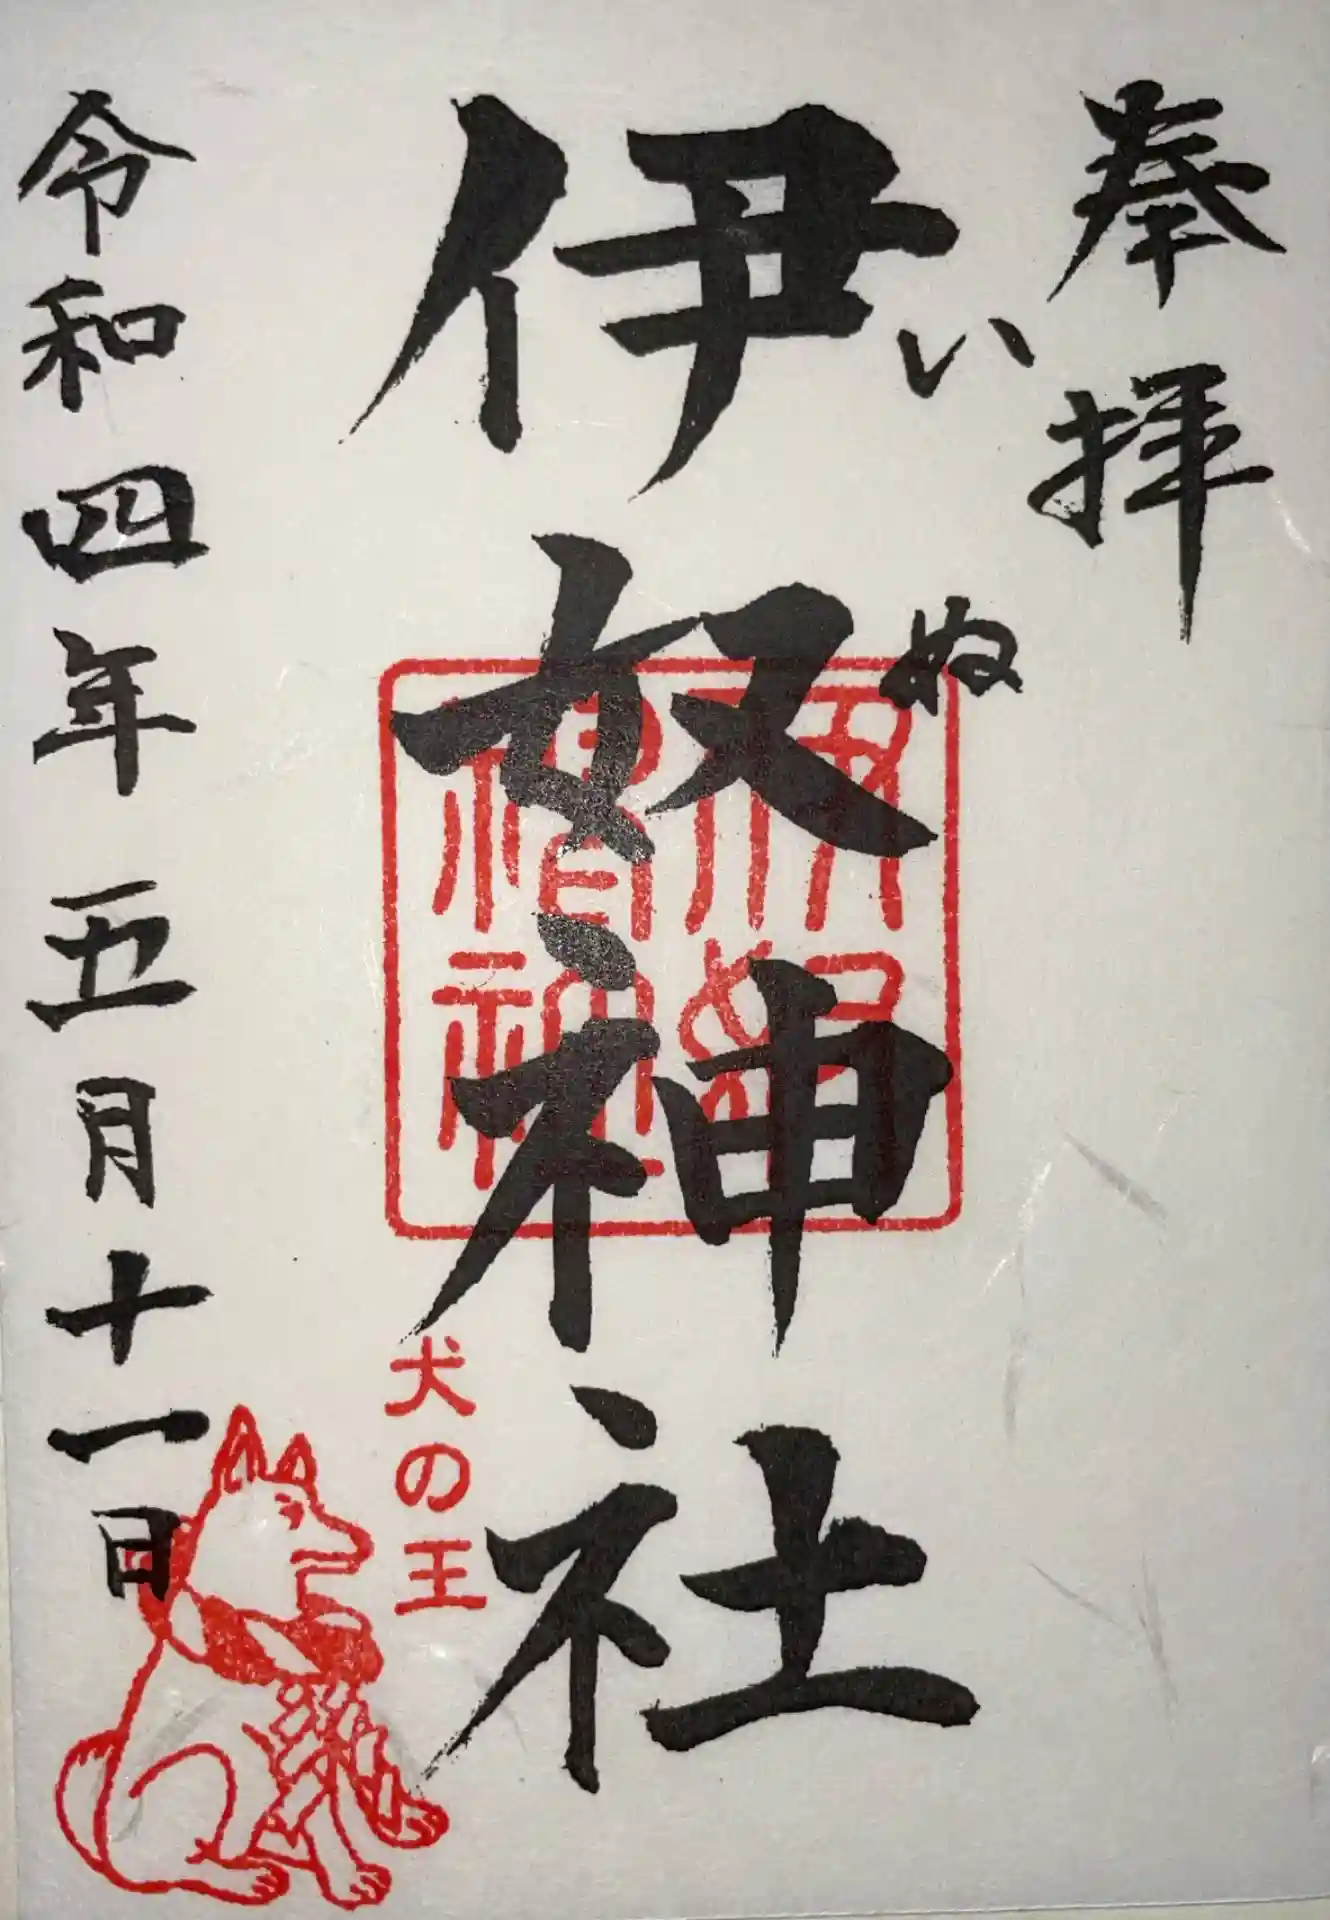 奉拝
いぬ
伊奴神社
伊奴神社
犬の王
令和四年五月十一日